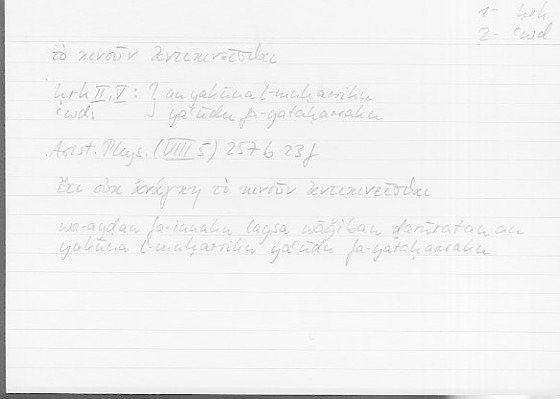 1- ḥrk
2- ʿwd
τὸ κινοῦν ἀντικινεῖσθαι
ḥrk II, V : } an yakūna l-muḥarriku
ʿwd : yaʿūdu fa-yataḥarraku
Arist. Phys. (VIII 5) 257 b 23 f
ἔτι οὐκ ἀνάγκη τὸ κινοῦν ἀντικινεῖσθαι
wa-ayḍan fa-innahu laysa wāǧiban ḍarūratan an
yakūna l-muḥarriku yaʿūdu fa-yataḥarraku